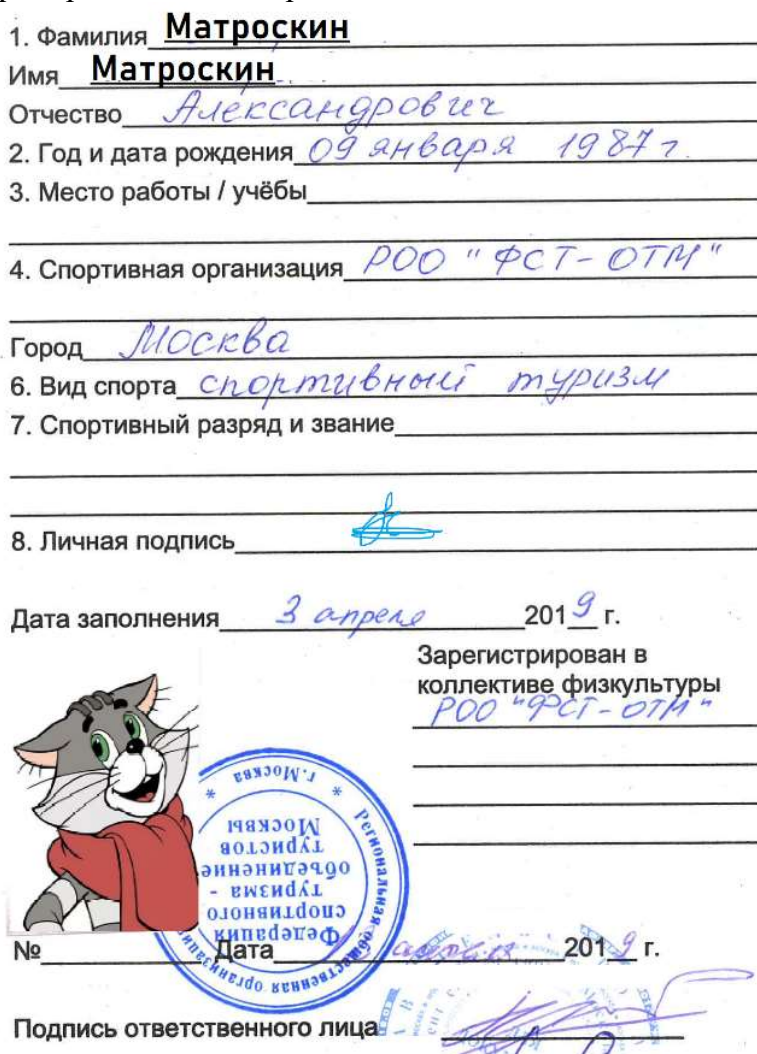 1. Фамилия Матроскин
Имя Матроскин
Отчество Александрович
2. Год и дата рождения 09 января 1987 г.
3. Место работы / учёбы
4. Спортивная организация РОО "ФСТ-ОТМ"
Город Москва
6. Вид спорта спортивный туризм
7. Спортивный разряд и звание
8. Личная подпись
Дата заполнения 3 апреля 2019 г.
Зарегистрирован в
коллективе физкультуры
РОО "ФСТ-ОТМ"
Региональная общественная организация
* г.Москва *
Федерация
спортивного
туризма -
объединение
туристов
Москвы
№ Дата апреля 2019 г.
Подпись ответственного лица